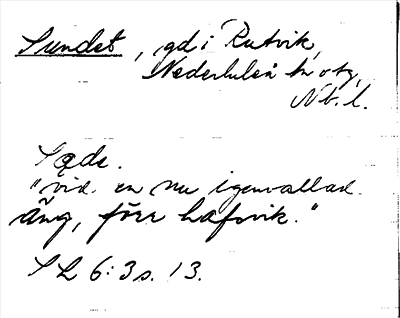 Sundet, gd i Rutvik,
Nederluleå tn o tg,
Nb. l.
Sǫde.
"vid en nu igenvallad
äng, förr hafsvik."
SL 6:3 s. 13.